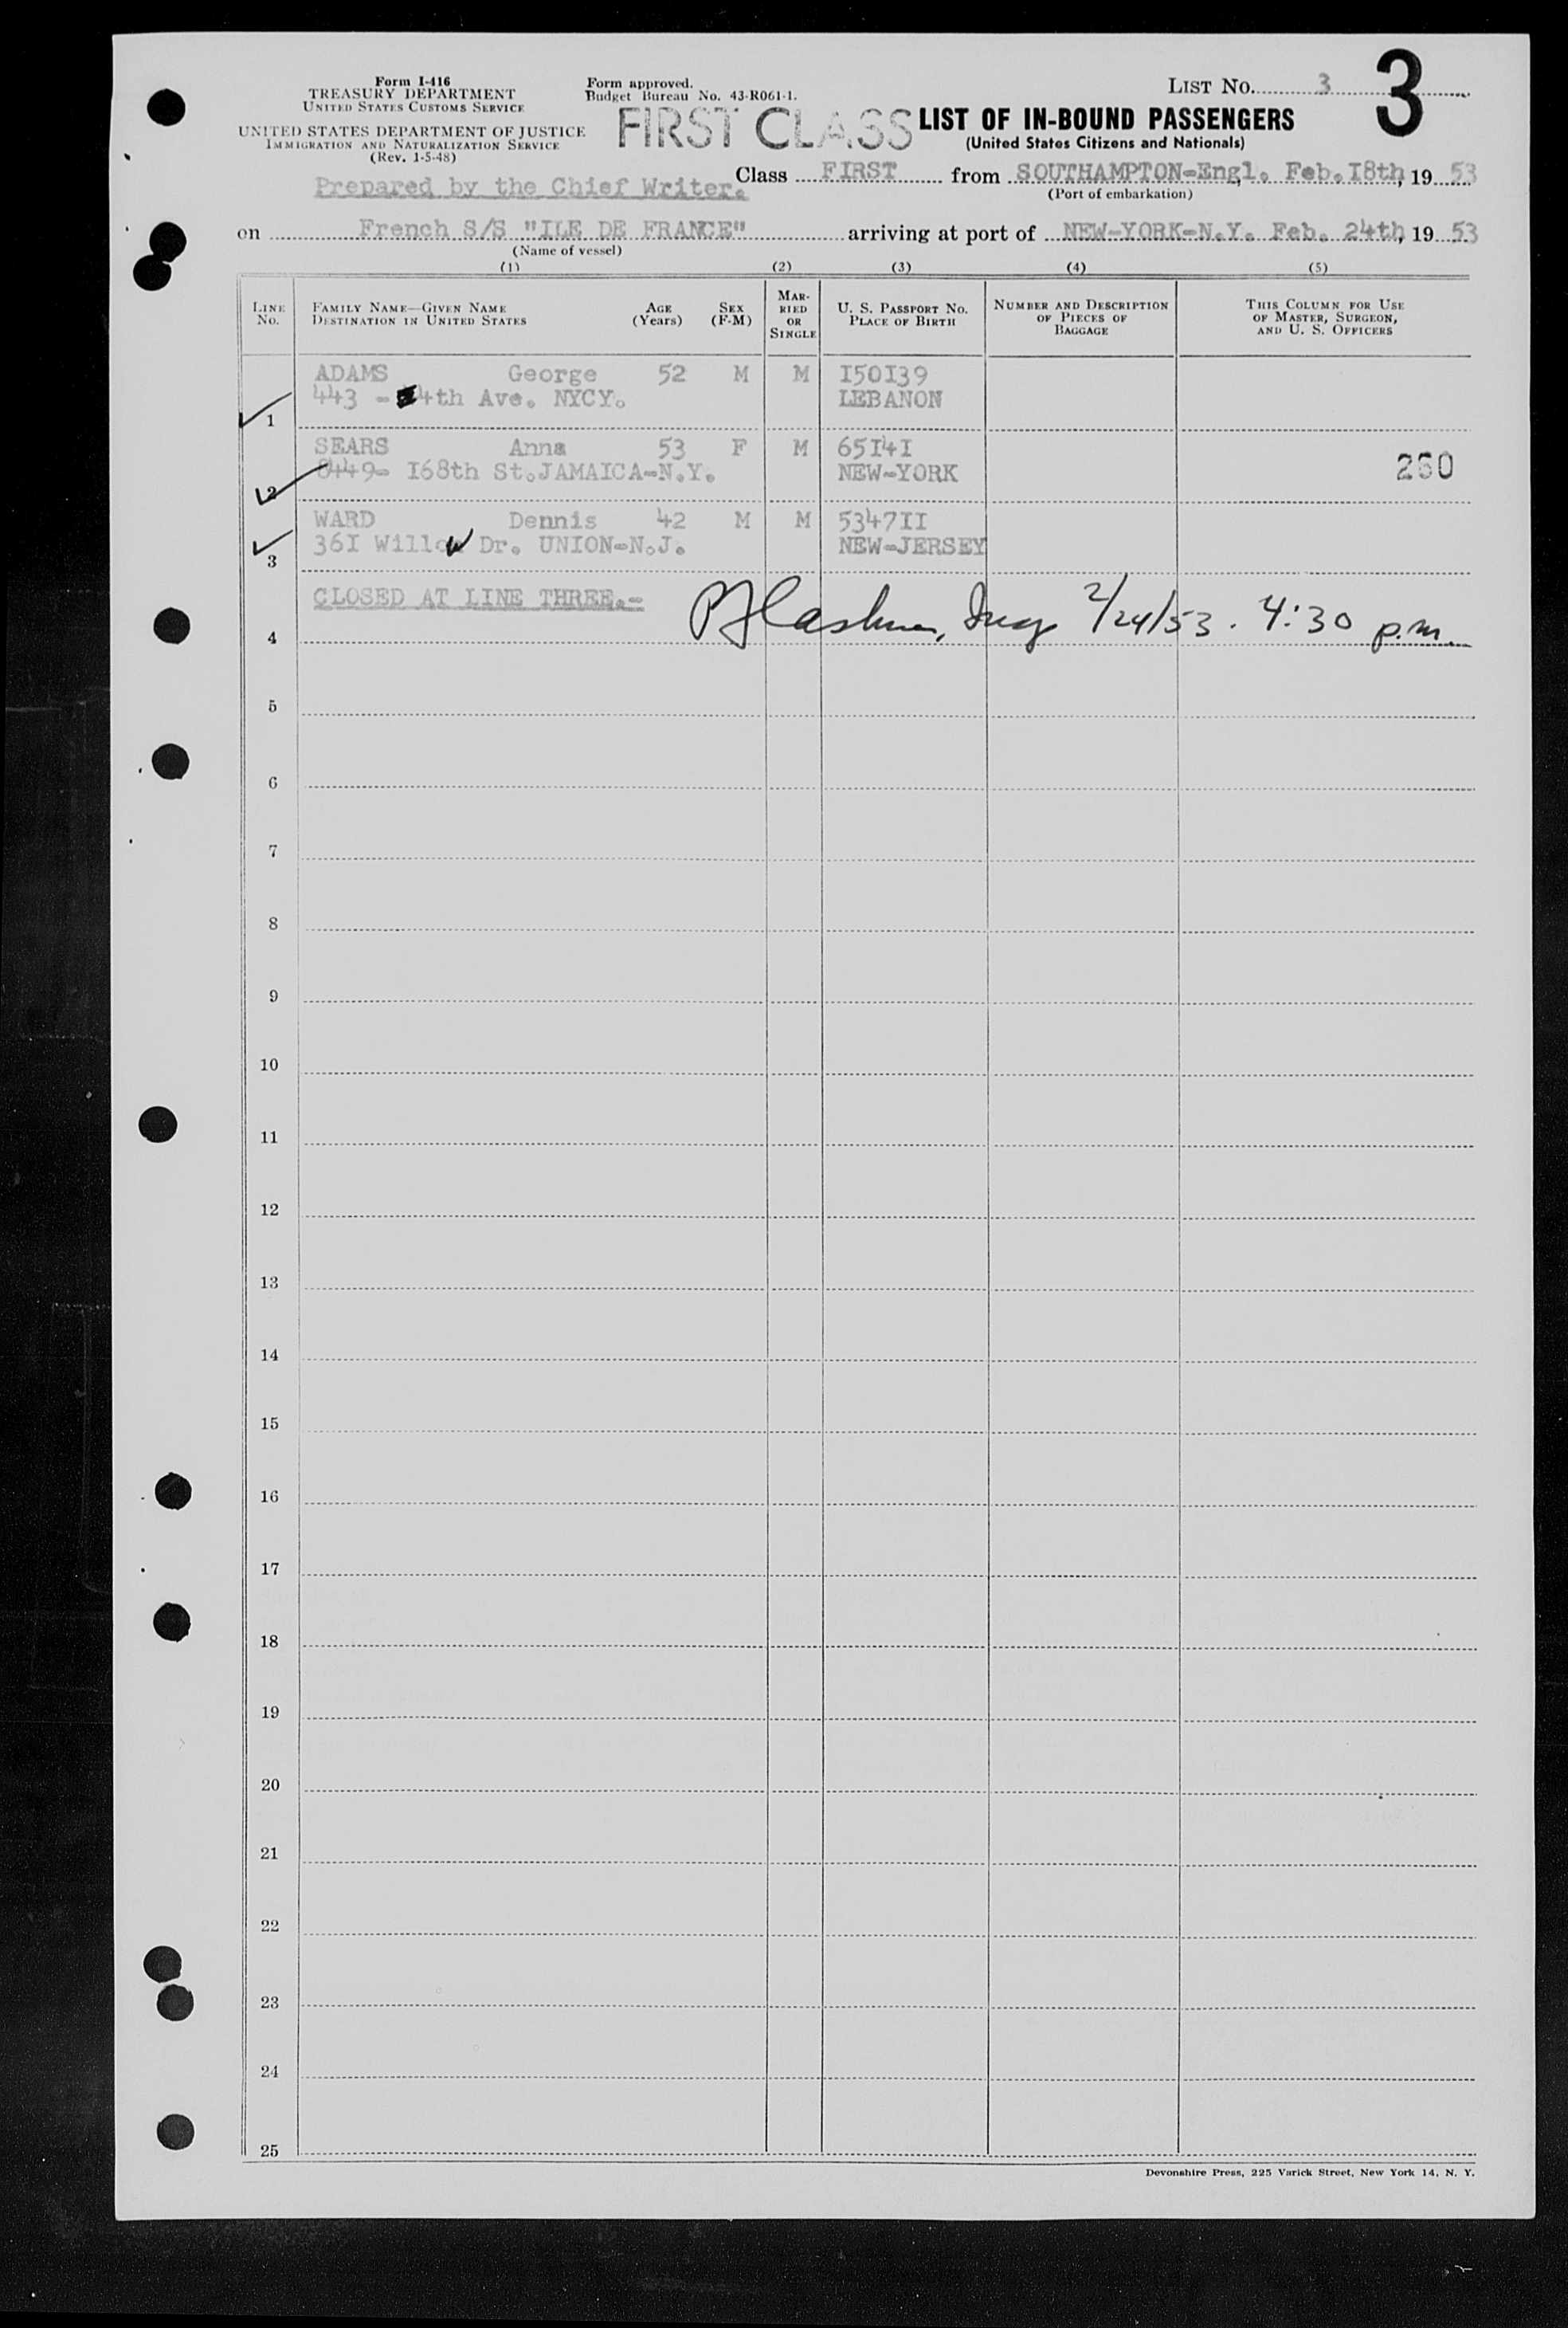 Form I-416
TREASURY DEPARTMENT
UNITED STATES CUSTOMS SERVICE
UNITED STATES DEPARTMENT OF JUSTICE
IMMIGRATION AND NATURALIZATION SERVICE
(Rev. 1-5-48)
Form approved.
Budget Bureau No. 43-R061-1.
LIST No. 3
3
FIRST CLASS
LIST OF IN-BOUND PASSENGERS
(United States Citizens and Nationals)
Prepared by the Chief Writer.
Class FIRST from SOUTHAMPTON-Engl. Feb. I8th, 19 53
(Port of embarkation)
on French S/S "ILE DE FRANCE" arriving at port of NEW-YORK-N.Y. Feb. 24th, 19 53
(Name of vessel)
(1) (2) (3) (4) (5)
LINE No.
FAMILY NAME—GIVEN NAME
DESTINATION IN UNITED STATES
AGE (Years)
SEX (F-M)
MARRIED OR SINGLE
U. S. PASSPORT No.
PLACE OF BIRTH
NUMBER AND DESCRIPTION OF PIECES OF BAGGAGE
THIS COLUMN FOR USE OF MASTER, SURGEON, AND U. S. OFFICERS
ADAMS George 52 M M I50I39
1 443 - 4th Ave. NYCY. LEBANON
SEARS Anna 53 F M 65I4I
2 8449- I68th St.JAMAICA-N.Y. NEW-YORK 260
WARD Dennis 42 M M 5347II
3 36I Willow Dr. UNION-N.J. NEW-JERSEY
CLOSED AT LINE THREE.-
4 2/24/53. 4:30 p.m.
5
6
7
8
9
10
11
12
13
14
15
16
17
18
19
20
21
22
23
24
25
Devonshire Press, 225 Varick Street, New York 14, N. Y.